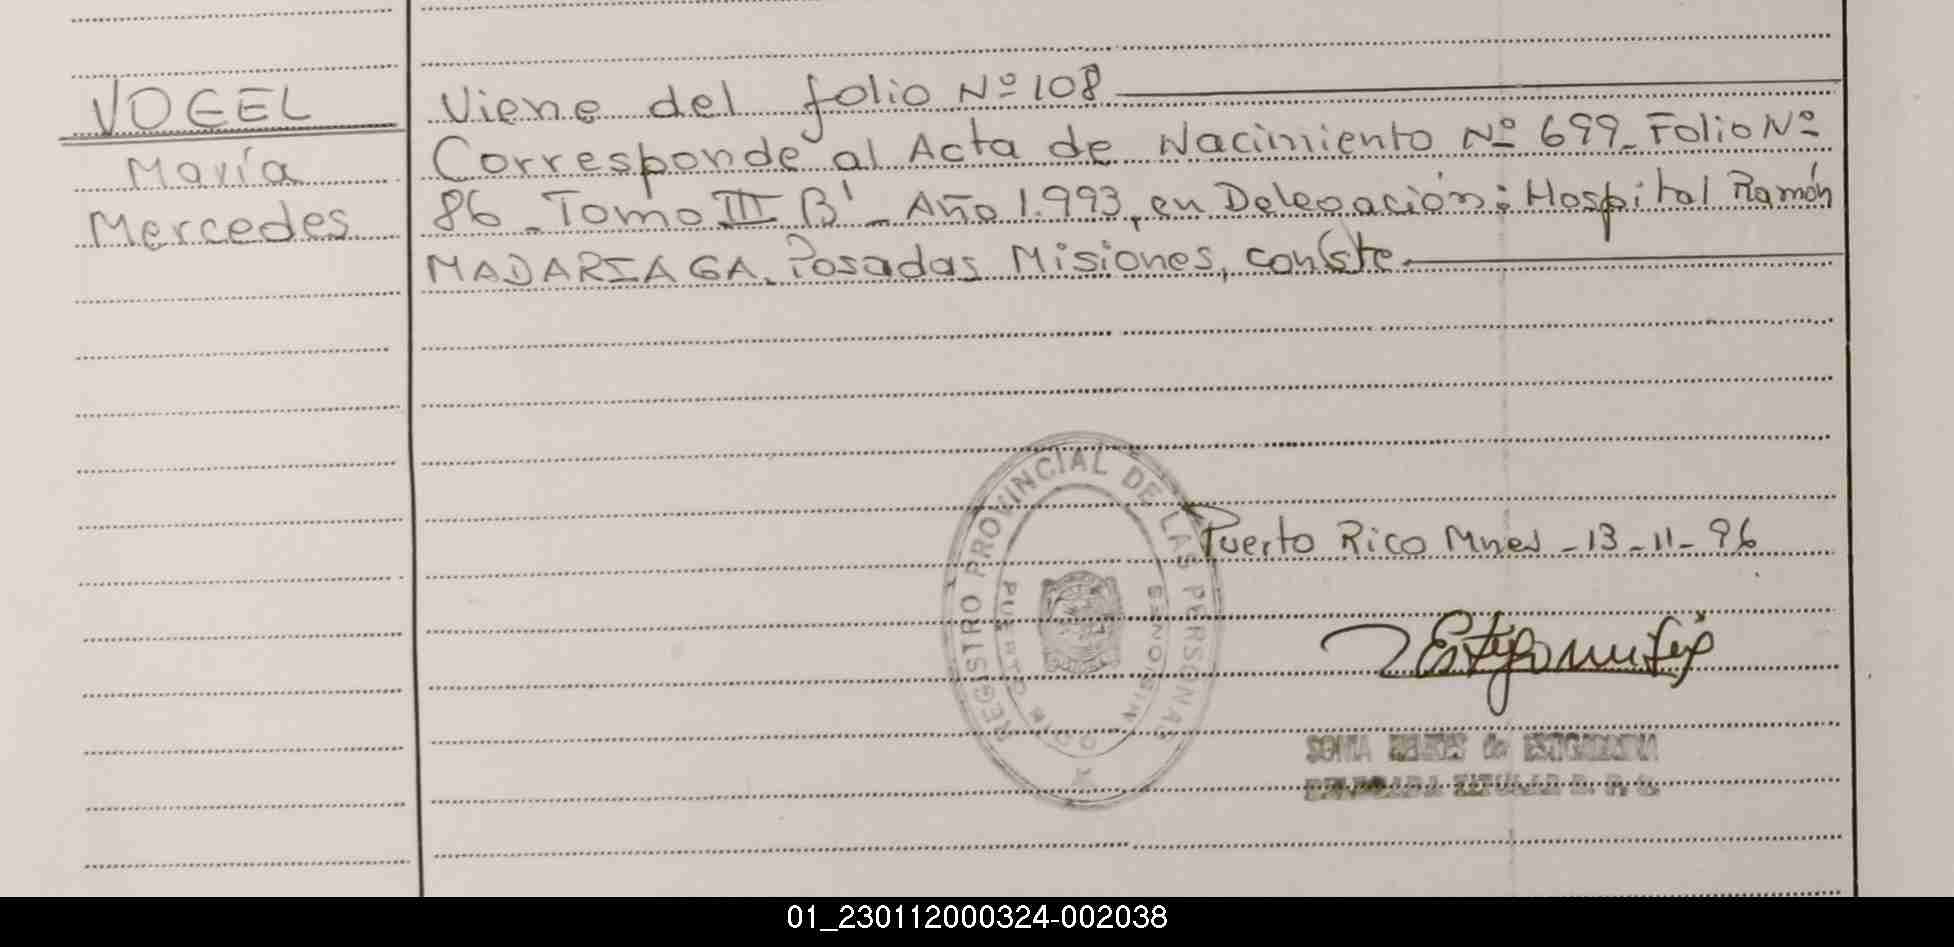 VOGEL
María
Mercedes
Viene del folio Nº 108
Corresponde al Acta de Nacimiento Nº 699_ Folio Nº
86_ Tomo III B'_ Año 1.993, en Delegación: Hospital Ramón
MADARIAGA. Posadas Misiones, conste.
REGISTRO PROVINCIAL DE LAS PERSONAS
PUERTO RICO
MISIONES
Puerto Rico Mnes _13_11_96
01_230112000324-002038